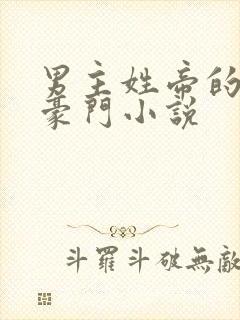 男主姓帝的
豪門小說
斗羅斗破無敵